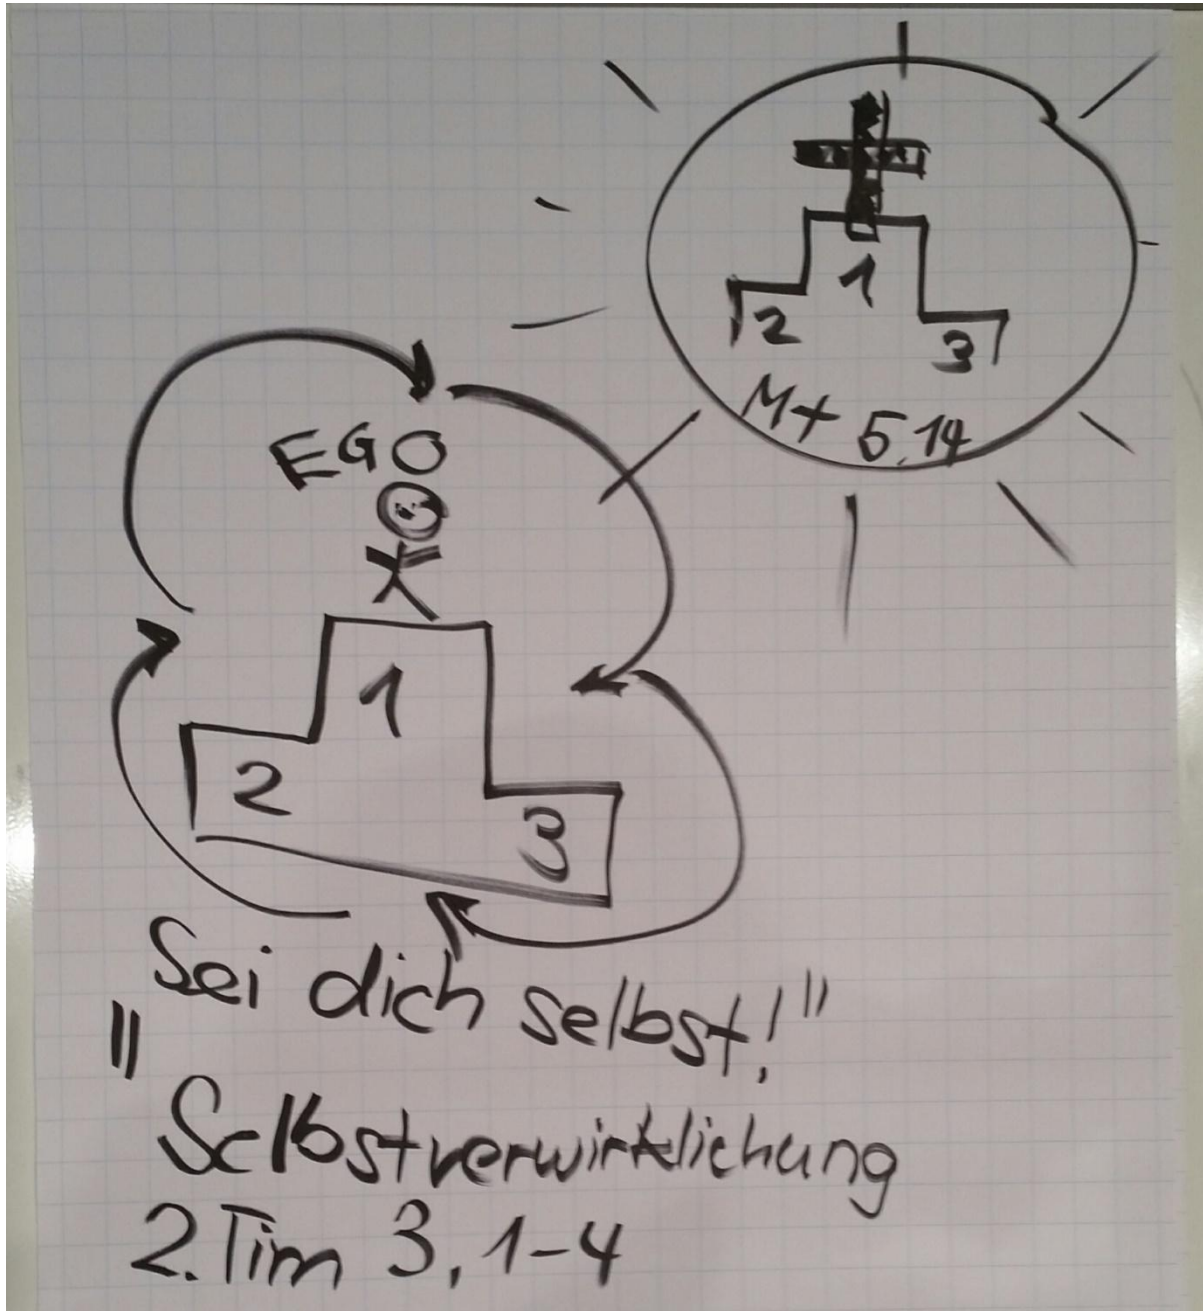 1
2
3
Mt 5,14
EGO
1
2
3
Sei dich selbst!"
"
Selbstverwirklichung
2. Tim 3, 1-4